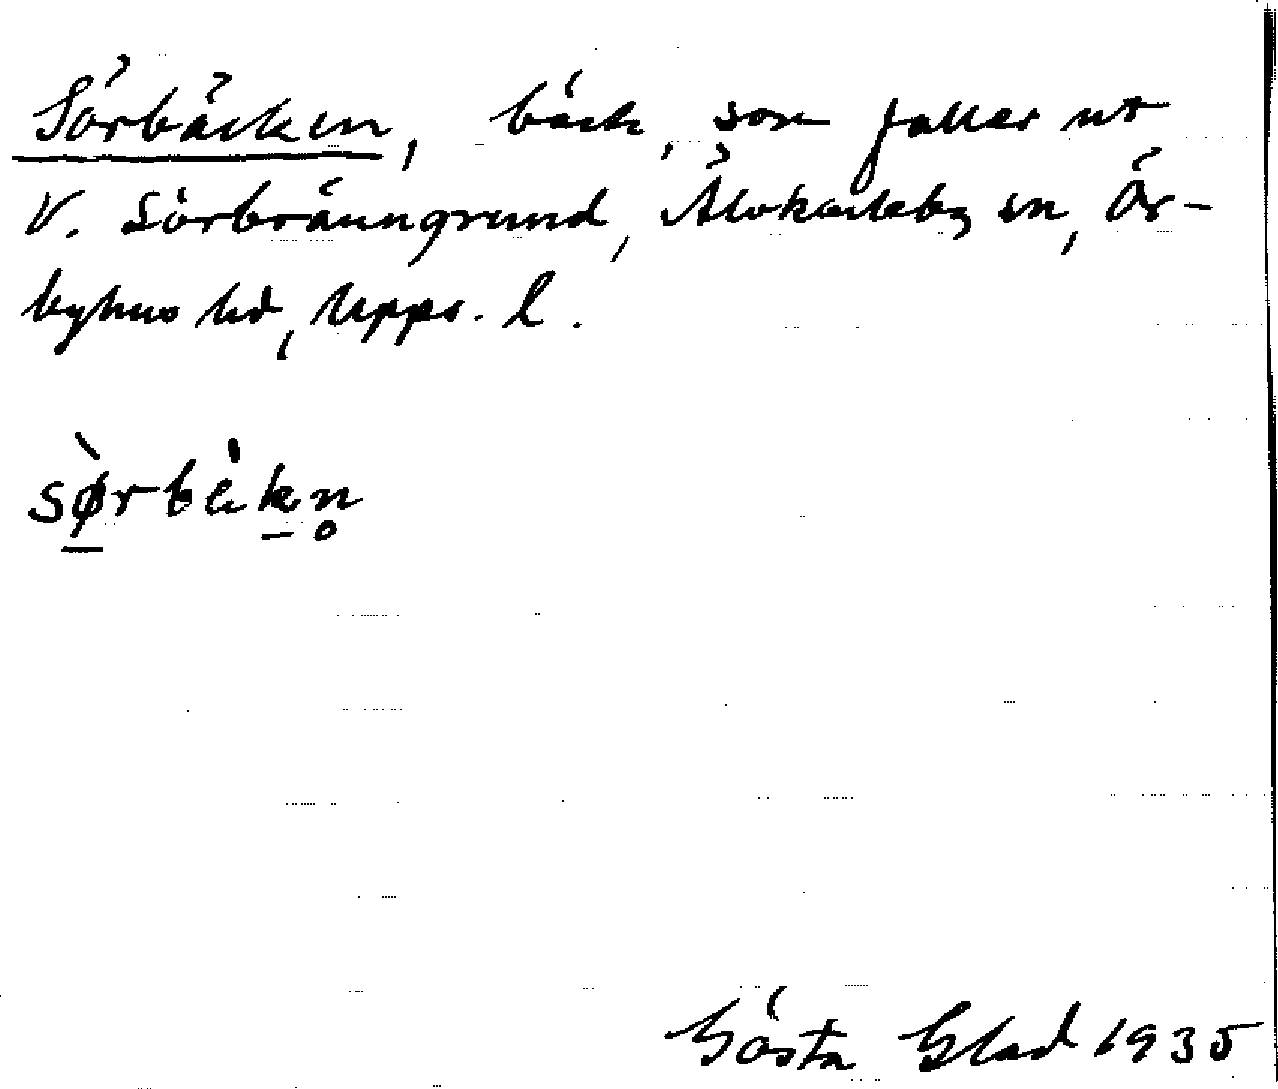 Sörbäcken, bäck, som faller ut
V. Sörbränngrund, Älvkarleby sn, Ör-
byhus hd, Upps. l.
sø̀rbèkn̥
Gösta Blad 1935